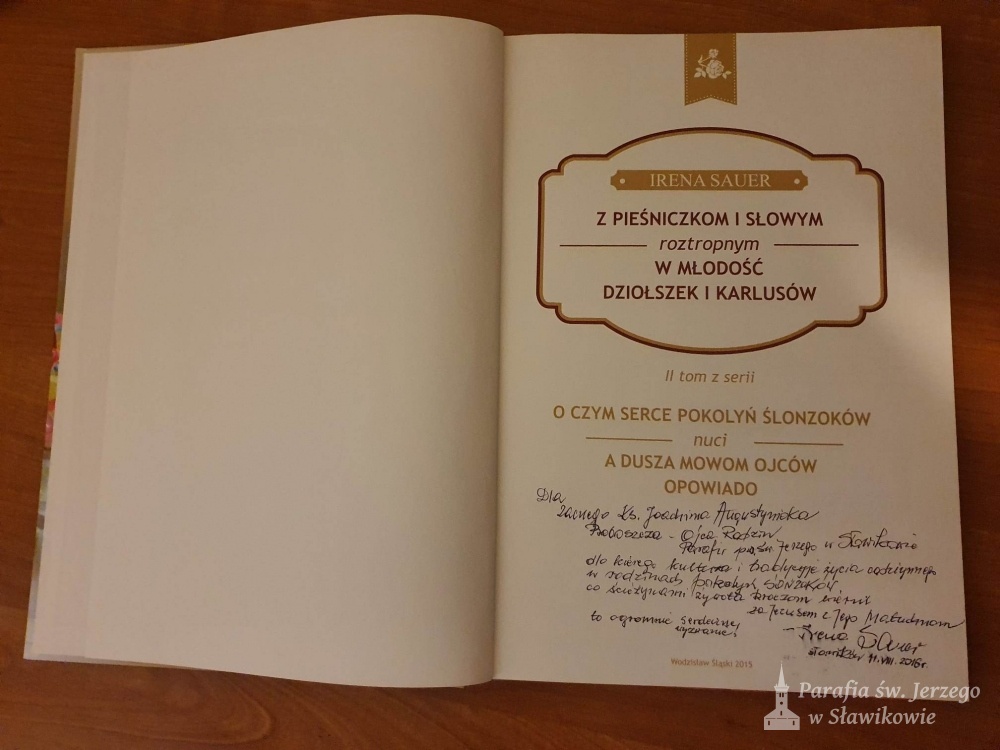 IRENA SAUER
Z PIEŚNICZKOM I SŁOWYM
roztropnym
W MŁODOŚĆ
DZIOŁSZEK I KARLUSÓW
II tom z serii
O CZYM SERCE POKOLYŃ ŚLONZOKÓW
nuci
A DUSZA MOWOM OJCÓW
OPOWIADO
Dla
zacnego Ks. Joachima Augustyniaka
Proboszcza - Ojca Rodzin
Parafii p.w. św. Jerzego w Sławikowie
dla którego kultura i tradycyje życia codziynnego
w rodzinach pokolyń
co ścieżynami żywota kroczom wiernie
za Jezusem i Jego Matką
to ogromnie serdeczne
wyznanie.
Irena Sauer
11.VIII.2016r.
Wodzisław Śląski 2015
Parafia św. Jerzego
w Sławikowie